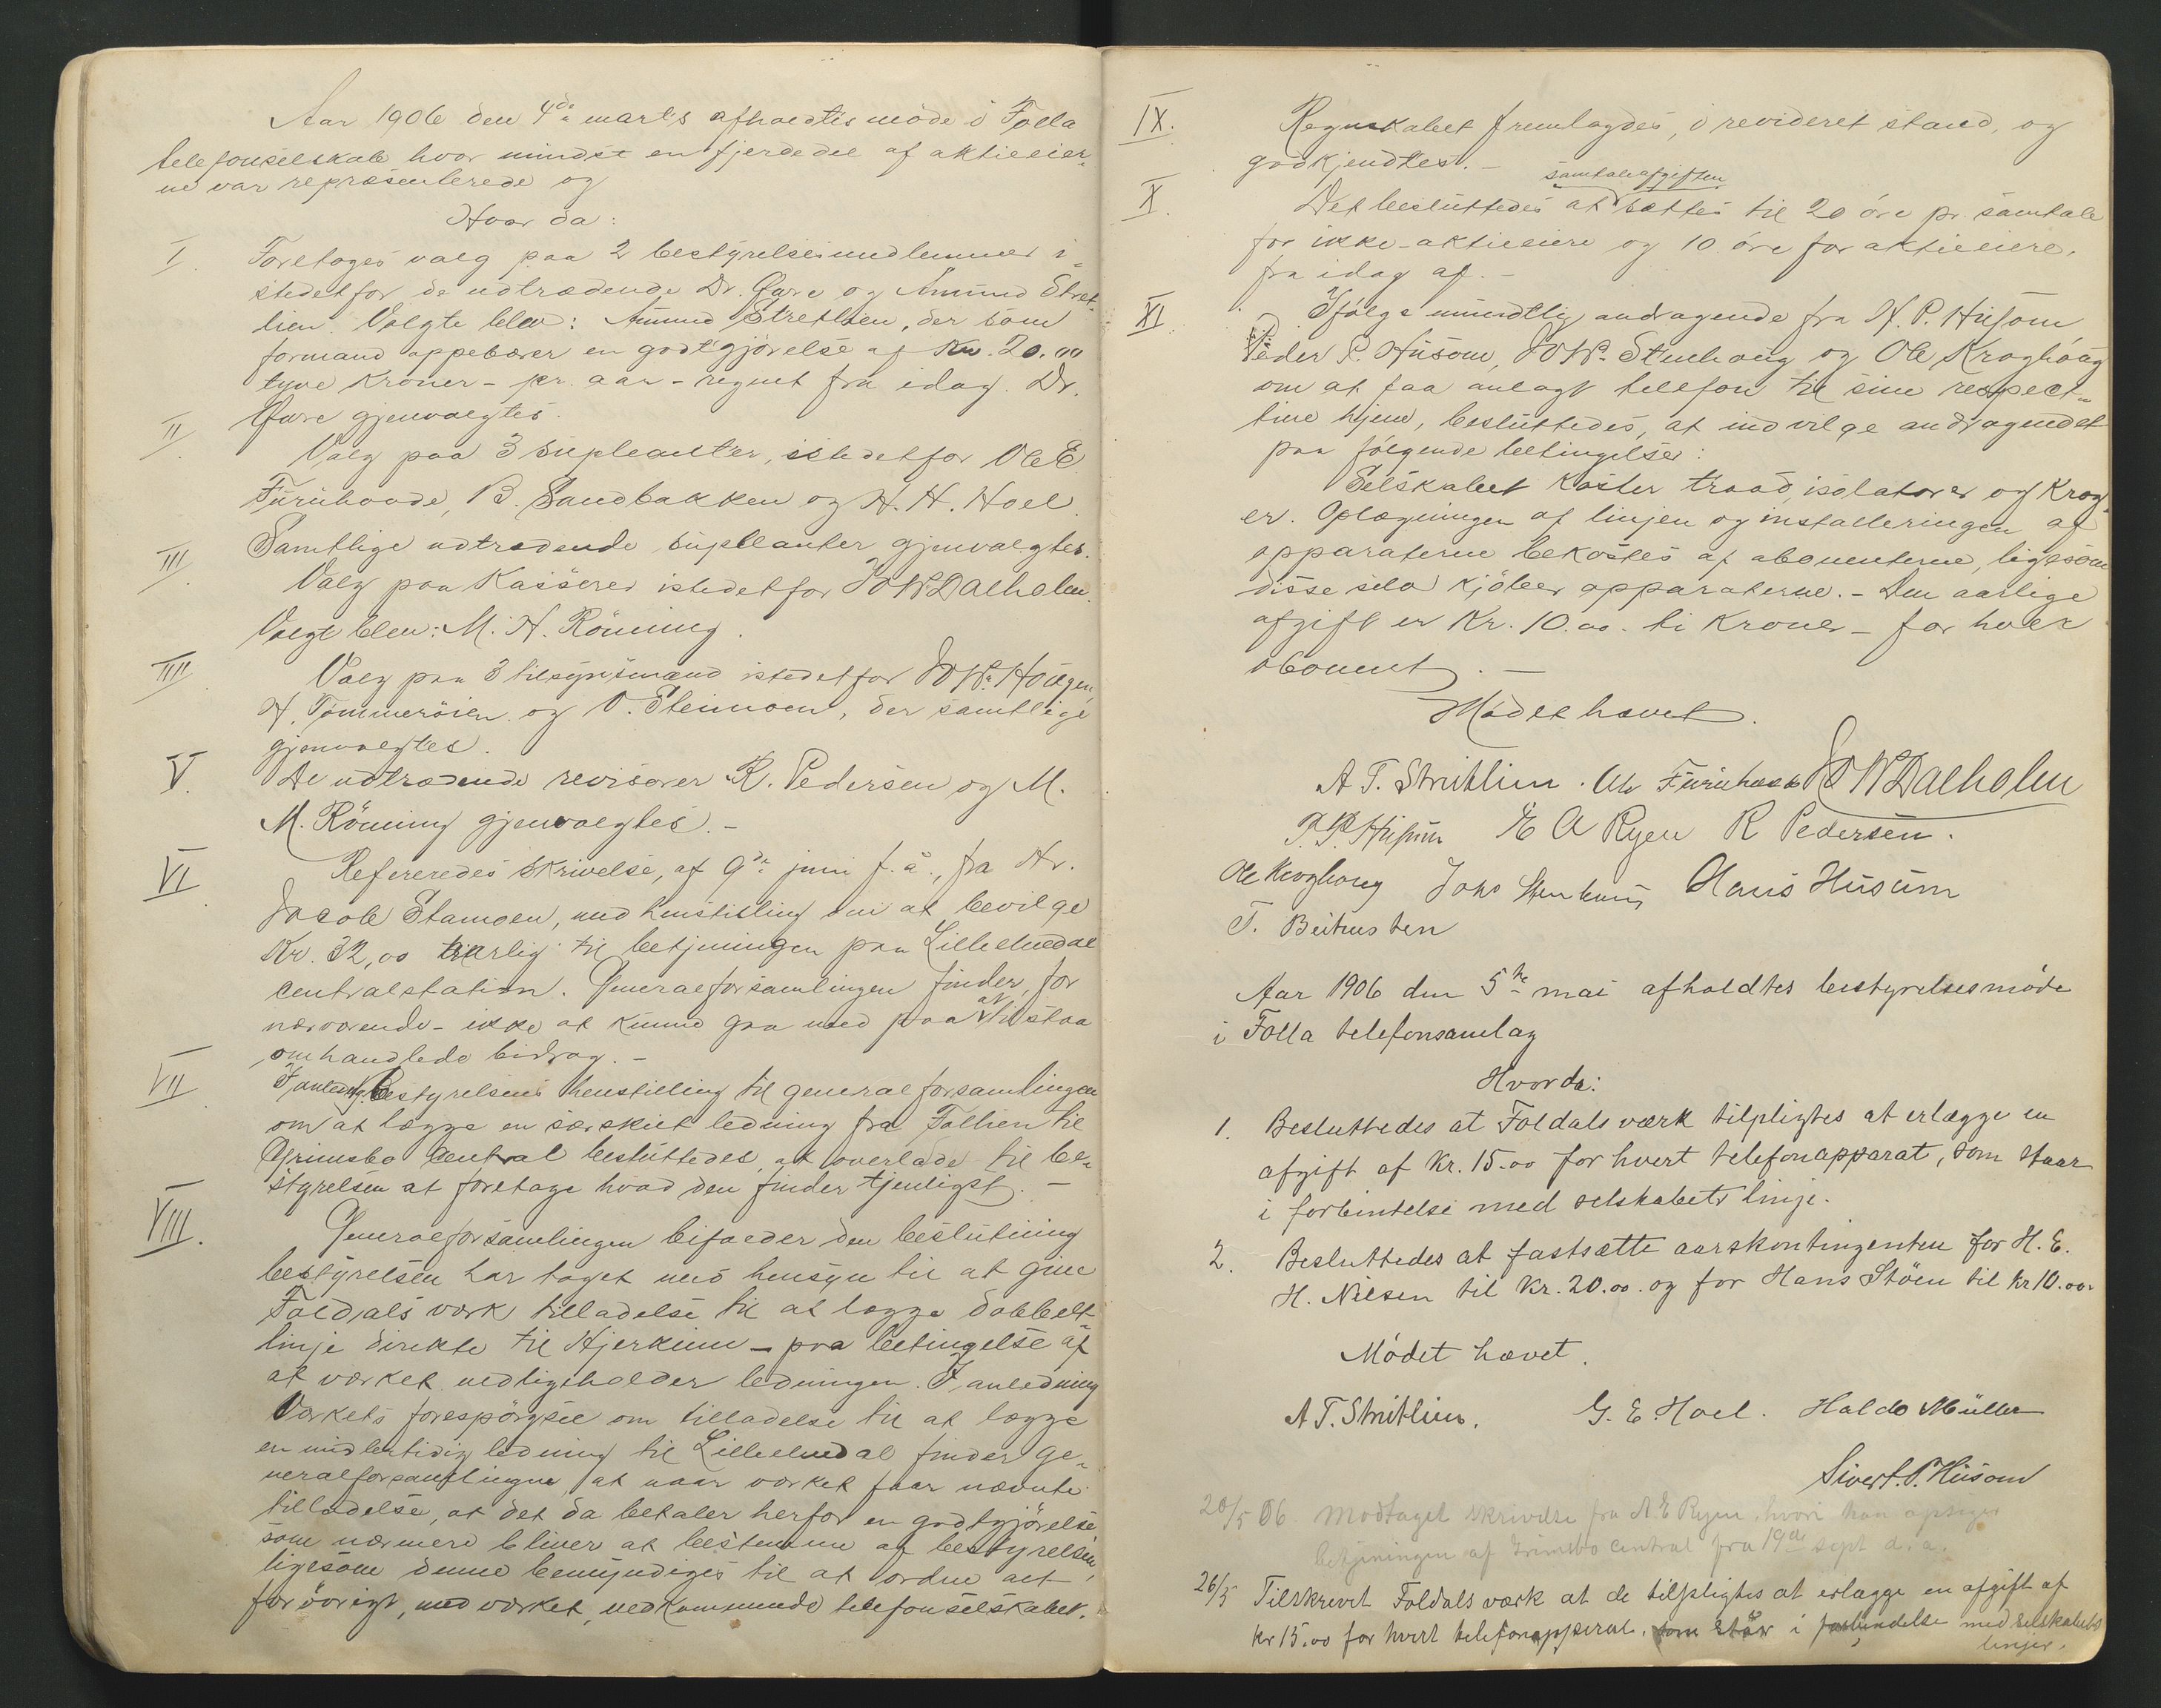 Aar 1906 den 4de marts afholdtes møde i Folla
telefonselskab hvor mindst en fjerdedel af aktieeier-
ne var repræsenterede og
Hvor da:
I. Foretoges valg paa 2 bestyrelsesmedlemmer i-
stedetfor de udtrædende Dr. Gare og Amund Stret-
lien. Valgte blev: Amund Stretlien, der som
formand oppebærer en godtgjørelse af Kr. 20.00
tyve kroner - pr. aar - regnet fra idag. Dr.
Gare gjenvalgtes.
II. Valg paa 3 supleanter, istedetfor Ole E
Furuhovde, B. Sandbakken og H. H. Hoel.
Samtlige udtrædende supleanter gjenvalgtes.
III. Valg paa Kasserer istedetfor J W Dalholm.
Valgt blev: M. H. Röning.
IIII. Valg paa 3 tilsynsmænd istedetfor Haugen,
H. Tømmerøien og O. Steimoen, der samtlige
gjenvalgtes.
V. De udtrædende revisorer R. Pedersen og M.
M. Röning gjenvalgtes. -
VI. Refereredes skrivelse, af 9de juni f. å., fra Hr.
Jacob Stamoen, med henstilling om at bevilge
Kr. 32,00 aarlig til betjeningen paa Lilleelvedal
centralstation. Generalforsamlingen finder, for
nærværende - ikke at kunne gaa med paa at tilstaa
omhandlede bidrag. -
VII. I anledng. Bestyrelsens henstilling til generalforsamlingen
om at lægge en særskilt ledning fra Follien til
Grimsbo Central besluttedes at overlade til be-
styrelsen at foretage hvad den finder tjenligst. -
VIII. Generalforsamlingen bifalder den beslutning
bestyrelsen har taget med hensyn til at give
Foldals værk tilladelse til at lægge dobbelt-
linje direkte til Hjerkinn - paa betingelse af
at værket vedligeholder ledningen. I anledning
Værkets forespørgsel om tilladelse til at lægge
en midlertidig ledning til Lilleelvedal finder ge-
neralforsamlingen, at naar værket faar nævnte
tilladelse, at det da betaler herfor en godtgjörelse,
som nærmere bliver at bestemme af bestyrelsen,
ligesom denne bemyndiges til at ordne alt
forövrigt, med værket, vedkommende telefonselskabet.
IX. Regnskabet fremlagdes, i revideret stand, og
godkjendtes. -
samtaleafgiften
X. Det besluttedes at sættes til 20 öre pr. samtale
for ikke-aktieeiere og 10 öre for aktieeiere,
fra idag af. -
XI. Ifølge mundtlig andragende fra H. P. Husom
Peder P. Husom, Stenhaug og Ole Kroghaug
om at faa anlagt telefon til sine respect-
tive hjem, besluttedes, at indvilge andragendet
paa følgende betingelser:
Selskabet koster traad, isolatorer og krog-
er. Oplægningen af linjen og installeringen af
apparaterne bekostes af abonenterne, ligesom
disse selv kjöber apparaterne. - Den aarlige
afgift er Kr. 10.00. ti Kroner - for hver
abonent. -
Mödet hævet.
A T. Stretlien. Ole Furuhovde J W Dalholm
P. P. Husum E A Ryen R Pedersen.
Ole Kroghaug Johs Stenhaug Hans Husum
T.
Aar 1906 den 5te mai afholdtes bestyrelsesmöde
i Folla telefonsamlag
Hvor da:
1. Besluttedes at Foldals værk tilpligtes at erlægge en
afgift af Kr. 15.00 for hvert telefonapparat, som staar
i forbintelse med selskabets linje.
2. Besluttedes at fastsætte aarskontingenten for H. E.
H. Nilsen til Kr. 20.00. og for Hans Stöen til kr 10.00.
Mödet hævet.
A T. Stretlien. G. E. Hoel. Haldo Müller
Sivert. P. Husom
20/5 06. Modtaget skrivelse fra A E Ryen, hvori han opsiger
betjeningen af Grimsbo Central fra 19de sept d. a.
26/5 Tilskrevet Foldals værk at de tilpligtes at erlægge en afgift af
kr 15.00 for hvert telefonapparat, som står i forbindelse med selskabets
linjer.